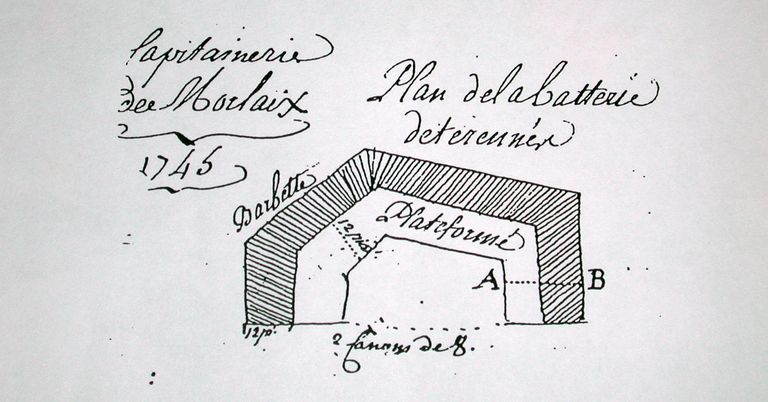 Capitainerie
de Morlaix
1745
Plan de la batterie
de térennés
Barbette
Plateforme
12 pies
A
B
12 p.
2 Canons de 8.